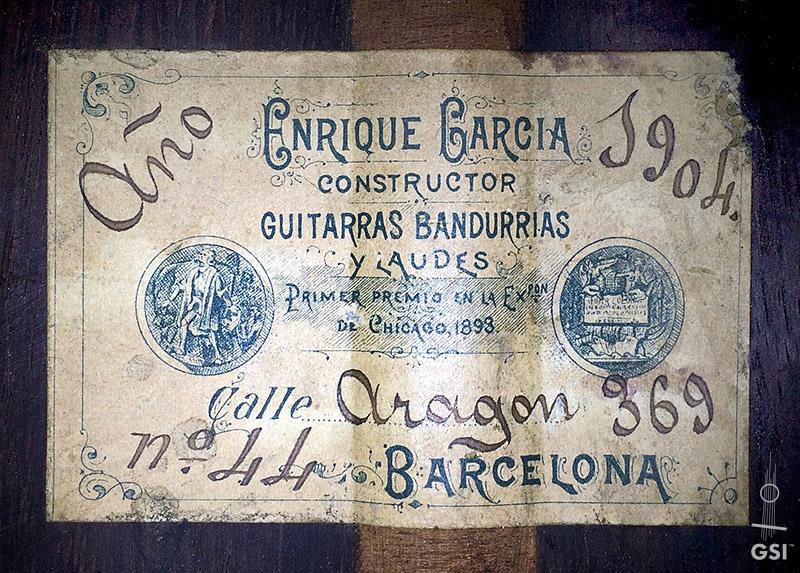 Año ENRIQUE GARCIA 1904.
CONSTRUCTOR
GUITARRAS BANDURRIAS
Y LAUDES
PRIMER PREMIO EN LA EXPON
DE CHICAGO, 1893.
Calle Aragon 369
nº 44 BARCELONA
GSI™